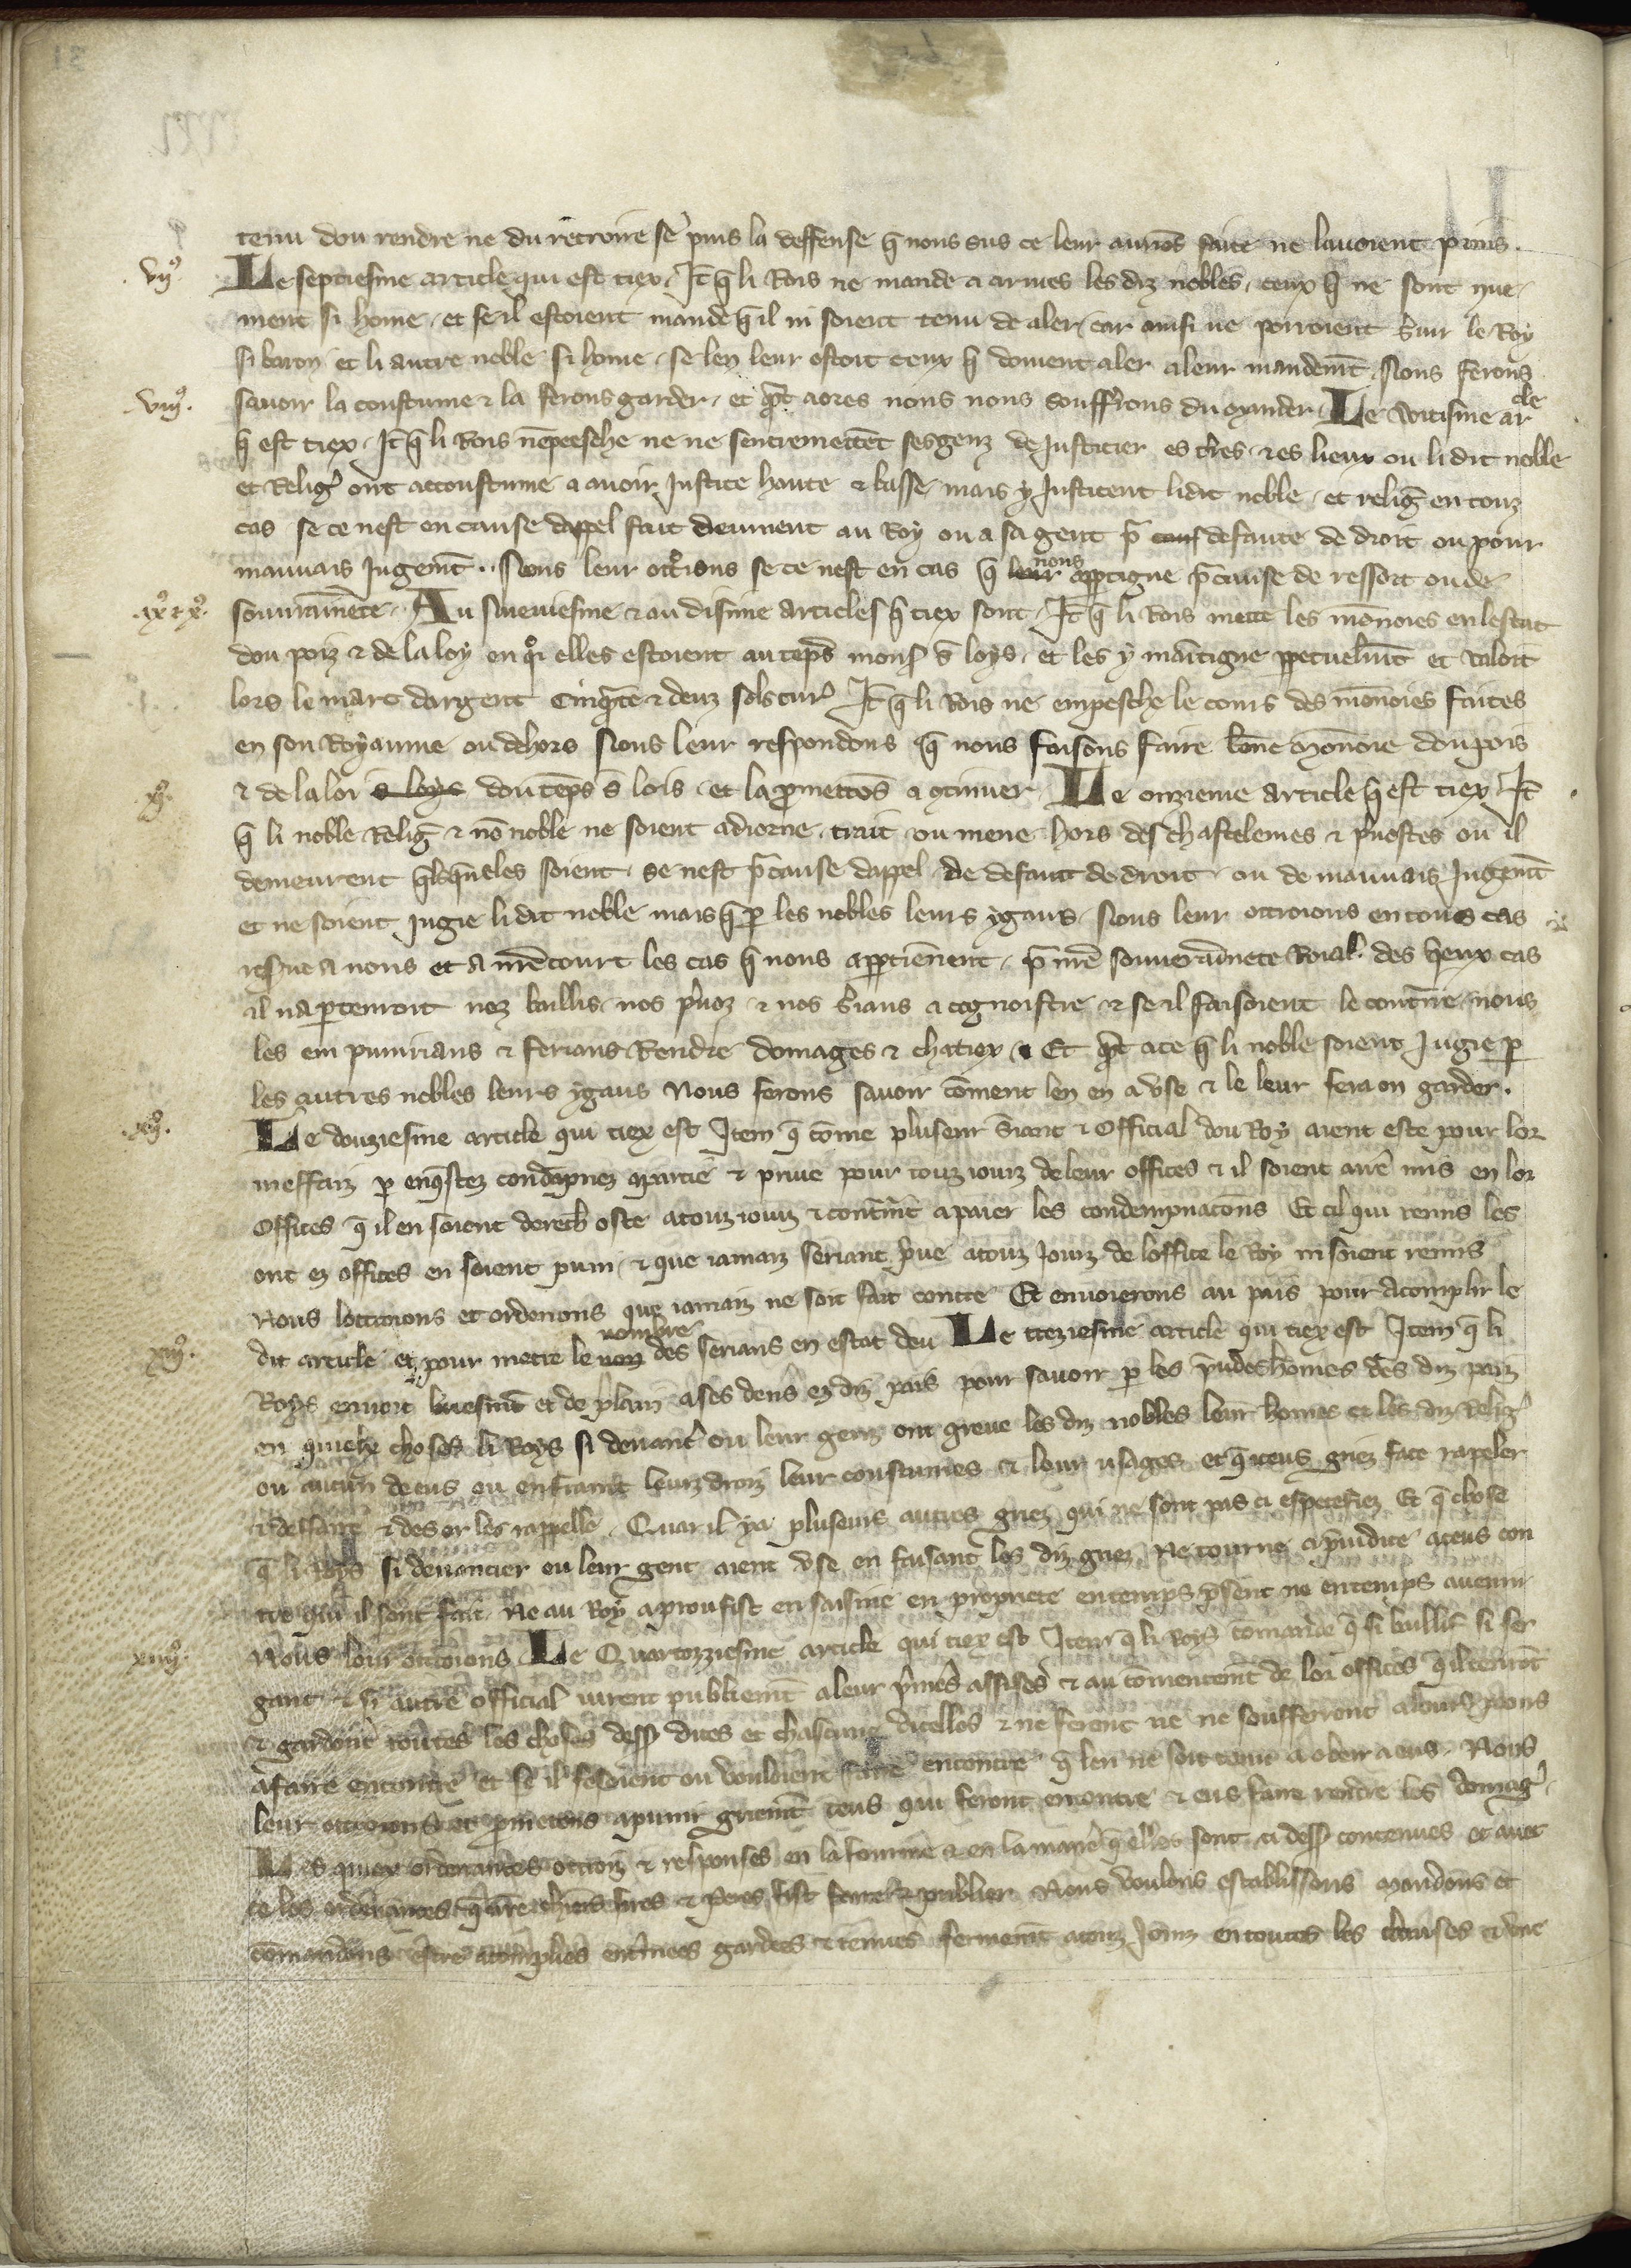 tenu dou rendre ne du recroire se puis la deffense q̃ nous sus ce leur auriõs faite ne lauoient prins.
vijº. Le septiesme article qui est tiex. Itẽ q̃ li Rois ne mande a armes les diz nobles, ceux q̃ ne sont nue
ment si home. et se il estoient mande q̃ il ni soient tenu de aler, car ainsi ne porroient s̃uir le Roy
si baron et li autre noble si home. se len leur ostoit ceux q̃ doiuent aler a leur mandemt̃. Nous ferons
viijº. sauoir la coustume ⁊ la ferons garder. et q̃nt a ores nous nous souffrirons du mander. Le witisme arcle
q̃ est tiex. Itẽ q̃ li Rois nẽpeesche ne ne sentremettẽt ses genz de Justicier es t̃res. ⁊ es lieux ou li dit noble
et Relig̃ ont accoustume a auoir Justice haute ⁊ basse. mais y Justicent li dit noble. et relig̃ en touz
cas se ce nest en cause dappel fait deument au Roy ou a sa gent pr̃ defaute de droit ou pour
mauuais Jugemt̃. Nous leur ottrions se ce nest en cas q̃ nous appartigne pr̃ cause de ressort ou de
ixº ⁊ xº. souuraĩnete. Au Nueuiesme ⁊ au disime articles q̃ tiex sont. Itẽ q̃ li Rois mette les mõnoies en lestat
dou poiz ⁊ de la loy en q̃i elles estoient au tẽps mons̃ s̃ loys. et les y maĩtigne ppetuelmt̃ et valoit
lors le marc dargent Cinq̃te ⁊ deuz sols tur̃ Itẽ q̃ li Rois ne empesche le cours des mõnoies faites
en son Royaume ou dehors Nous leur respondons q̃ nous faisons faire bõne Mõnoie dou pois
xjº. ⁊ de la loi s̃ loys dou tẽps s̃ lois. et la p̃mettõs a ꝯtinuer. Le onzieme article q̃ est tiex. Itẽ
q̃ li noble Relig̃ ⁊ nõ noble ne soient adiorne. trait ou mene hors des chastelenies ⁊ p̃uostes ou il
demeurent soient. se nest pr̃ cause dappel de defaut de droit. ou de mauuais Jugemt̃
et ne soient Jugie li dit noble mais q̃ p les nobles leurs ygaus. Nous leur ottroions en tous cas
a nous et a nr̃e court les cas q̃ nous appartiẽnent. pr̃ nr̃e souueraĩnete Roial. des q̃eux cas
il napartenroit noz baillis. nos p̃uoz ⁊ nos s̃ians a cognoistre. ⁊ se il faisoient le contr̃ire nous
les em puniriens ⁊ feriens Rendre domages ⁊ chatiex. Et q̃nt a ce q̃ li noble soient Jugie p
les autres nobles leurs ygaus Nous ferons sauoir cõment len en a vse ⁊ le leur fera on garder.
xijº. Le douziesme article qui tiex est Item q̃ cõme pluseur S̃iant ⁊ Official dou Roy aient este pour lor
meffaiz p enq̃stez condãpnez ⁊ priue pour touz iourz de leur offices ⁊ il soient arr̃e mis en lor
Offices q̃ il en soient derech̃ oste a touz iourz ⁊ contraĩt a paier les condempnacõns Et cil qui remis les
ont ez offices en soient puni. ⁊ que iamaiz seriant p̃ue a touz Jourz de loffice le Roy ni soient remis
Nous lottroions et ordenons que iamaiz ne soit fait contre Et enuoierons au païs pour acomplir le
xiijº. dit article et pour metre le nombre des serians en estat deu Le treziesme article qui tiex est Item q̃ li
Roys enuoit briesmt̃ et de plain a ses dens̃ ez diz païs pour sauoir p les p̃udes hõmes des diz paiz
en quiex choses li Roys si deuanc̃ ou leur genz ont greue les diz nobles leur homes et les diz Relig̃
ou aucun de eus ou enfraint leurs droiz leur coustumes ⁊ leur usages et q̃ iteus griez face rapeler
⁊ deffaire ⁊ des or les rappelle. Quar il ya pluseurs autres griez qui ne sont pas ci especefiez Et q̃ chose
q̃ li Roys si deuancier ou leur gent aient vse en faisant les diz griez Ne tourne a p̃iudice a ceus con
tre qui il sont fait. Ne au Roy a proufist en saisine en propriete en temps p̃sent ne en temps auenir
xiiijº. Nous lour ottroions. Le Quatorziesme article qui tiex est Item q̃ li Roys cõmande q̃ si bailli si ser
gant ⁊ si autre official iurent publiemt̃ a leur p̃mieres assises ⁊ au cõmencemt̃ de lor offices q̃ il tenrõt
⁊ gardont toutes les choses dess̃ dites et chascune dicelles ⁊ ne feront ne ne soufferront a leurs pooirs
a faire encontre et se il fesoient ou vouloient faire encontre q̃ len ne soit tenu a obeir a eus. Nous
leur ottroions et p̃metons a punir griemt̃ ceus qui feront encontre ⁊ eus faire rendre les domag̃.
Les quiex ordenances ottroiz ⁊ responses en la fourme ⁊ en la maniere q̃ elles sont ci dess̃ contenues et auec
ce les ordenances q̃ nr̃e chiers sires ⁊ Peres fist faire ⁊ publier Nous voulons establissons mandons et
cõmandons estre acomplies enterinees gardees ⁊ tenues fermemt̃ a touz Jourz en toutes les clauses ⁊ vne